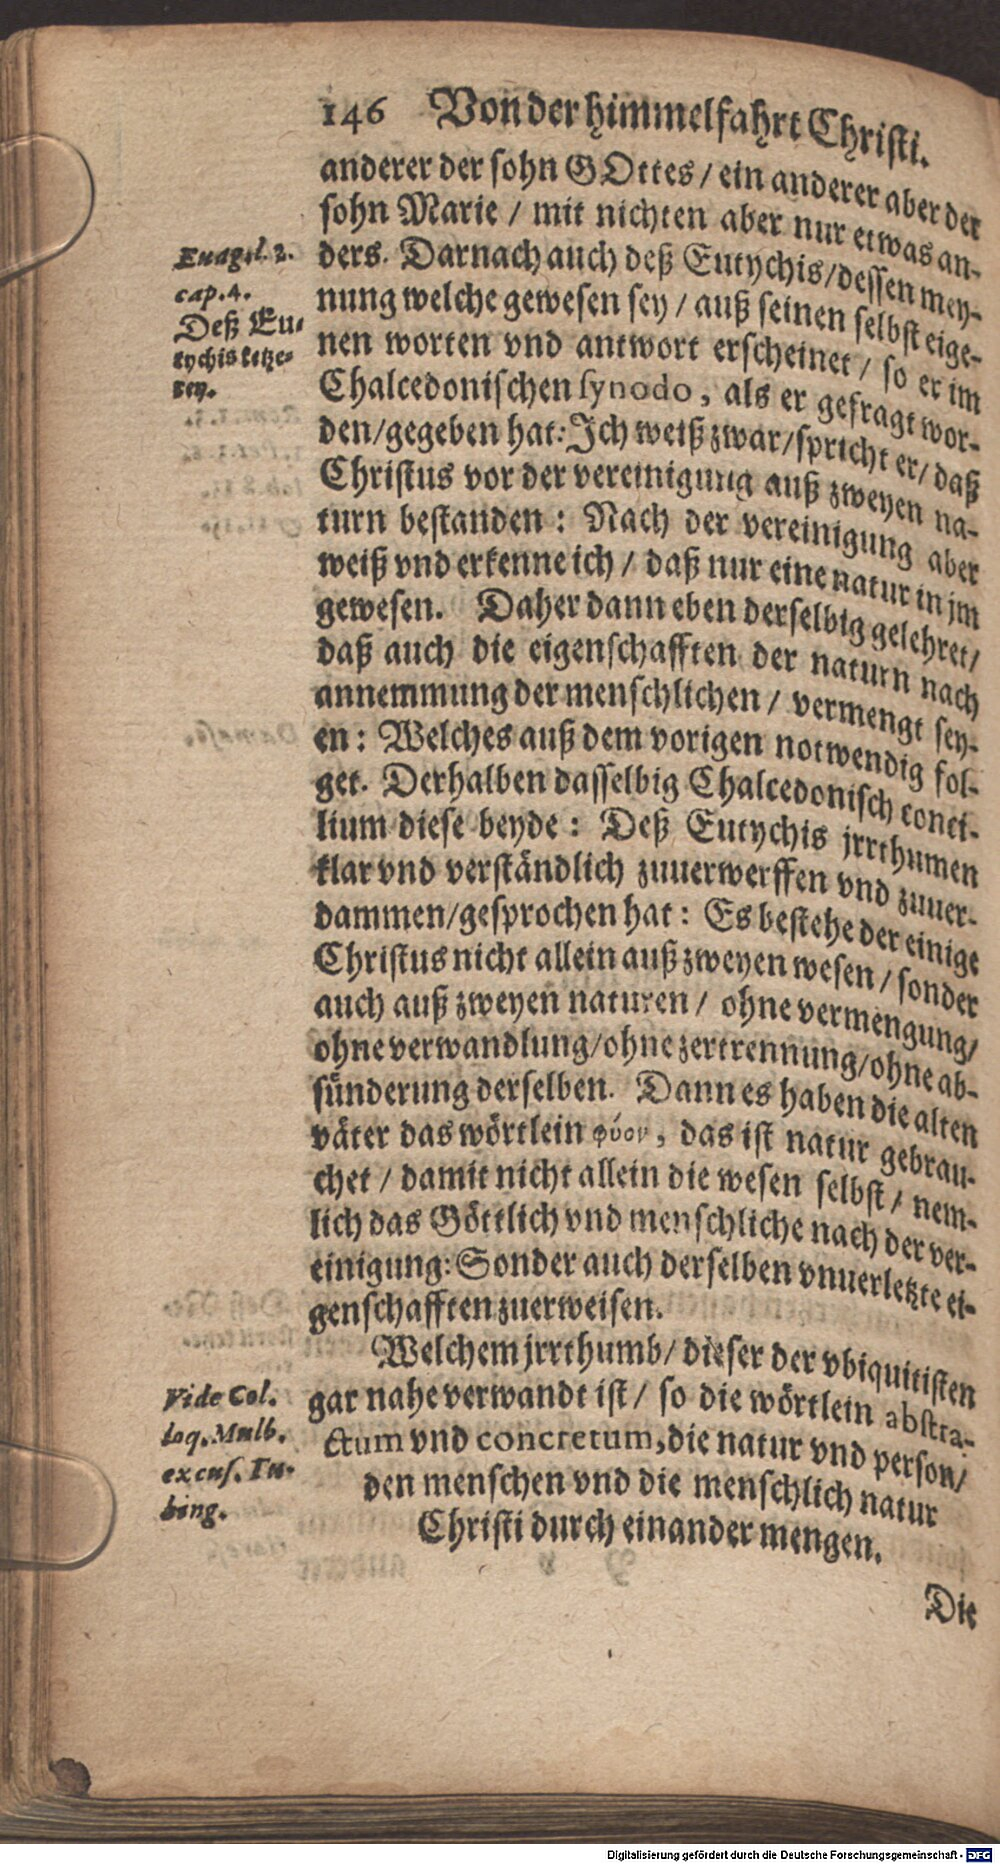 146 Von der himmelfahrt Christi.
anderer der sohn GOttes / ein anderer aber der
sohn Marie / mit nichten aber nur etwas an-
ders. Darnach auch deß Eutychis / dessen mey-
nung welche gewesen sey / auß seinen selbst eige-
nen worten vnd antwort erscheinet / so er im
Chalcedonischen synodo, als er gefragt wor-
den / gegeben hat: Ich weiß zwar / spricht er / daß
Christus vor der vereinigung auß zweyen na-
turn bestanden: Nach der vereinigung aber
weiß vnd erkenne ich / daß nur eine natur in jm
gewesen. Daher dann eben derselbig gelehret /
daß auch die eigenschafften der naturn nach
annemmung der menschlichen / vermengt sey-
en: Welches auß dem vorigen notwendig fol-
get. Derhalben dasselbig Chalcedonisch conci-
lium diese beyde: Deß Eutychis jrrthumen
klar vnd verständlich zuuerwerffen vnd zuuer-
dammen / gesprochen hat: Es bestehe der einige
Christus nicht allein auß zweyen wesen / sonder
auch auß zweyen naturen / ohne vermengung /
ohne verwandlung / ohne zertrennung / ohne ab-
sünderung derselben. Dann es haben die alten
väter das wörtlein φύσν, das ist natur gebrau-
chet / damit nicht allein die wesen selbst / nem-
lich das Göttlich vnd menschliche nach der ver-
einigung: Sonder auch derselben vnuerletzte ei-
genschafften zuerweisen.
Welchem jrrthumb / dieser der vbiquitisten
gar nahe verwandt ist / so die wörtlein abstra-
ctum vnd concretum, die natur vnd person /
den menschen vnd die menschlich natur
Christi durch einander mengen.
Die
Euagel. 2.
cap. 4.
Deß Eu-
tychis ketze-
rey.
Vide Col.
loq. Mulb.
excus. Tu-
bing.
Digitalisierung gefördert durch die Deutsche Forschungsgemeinschaft - DFG